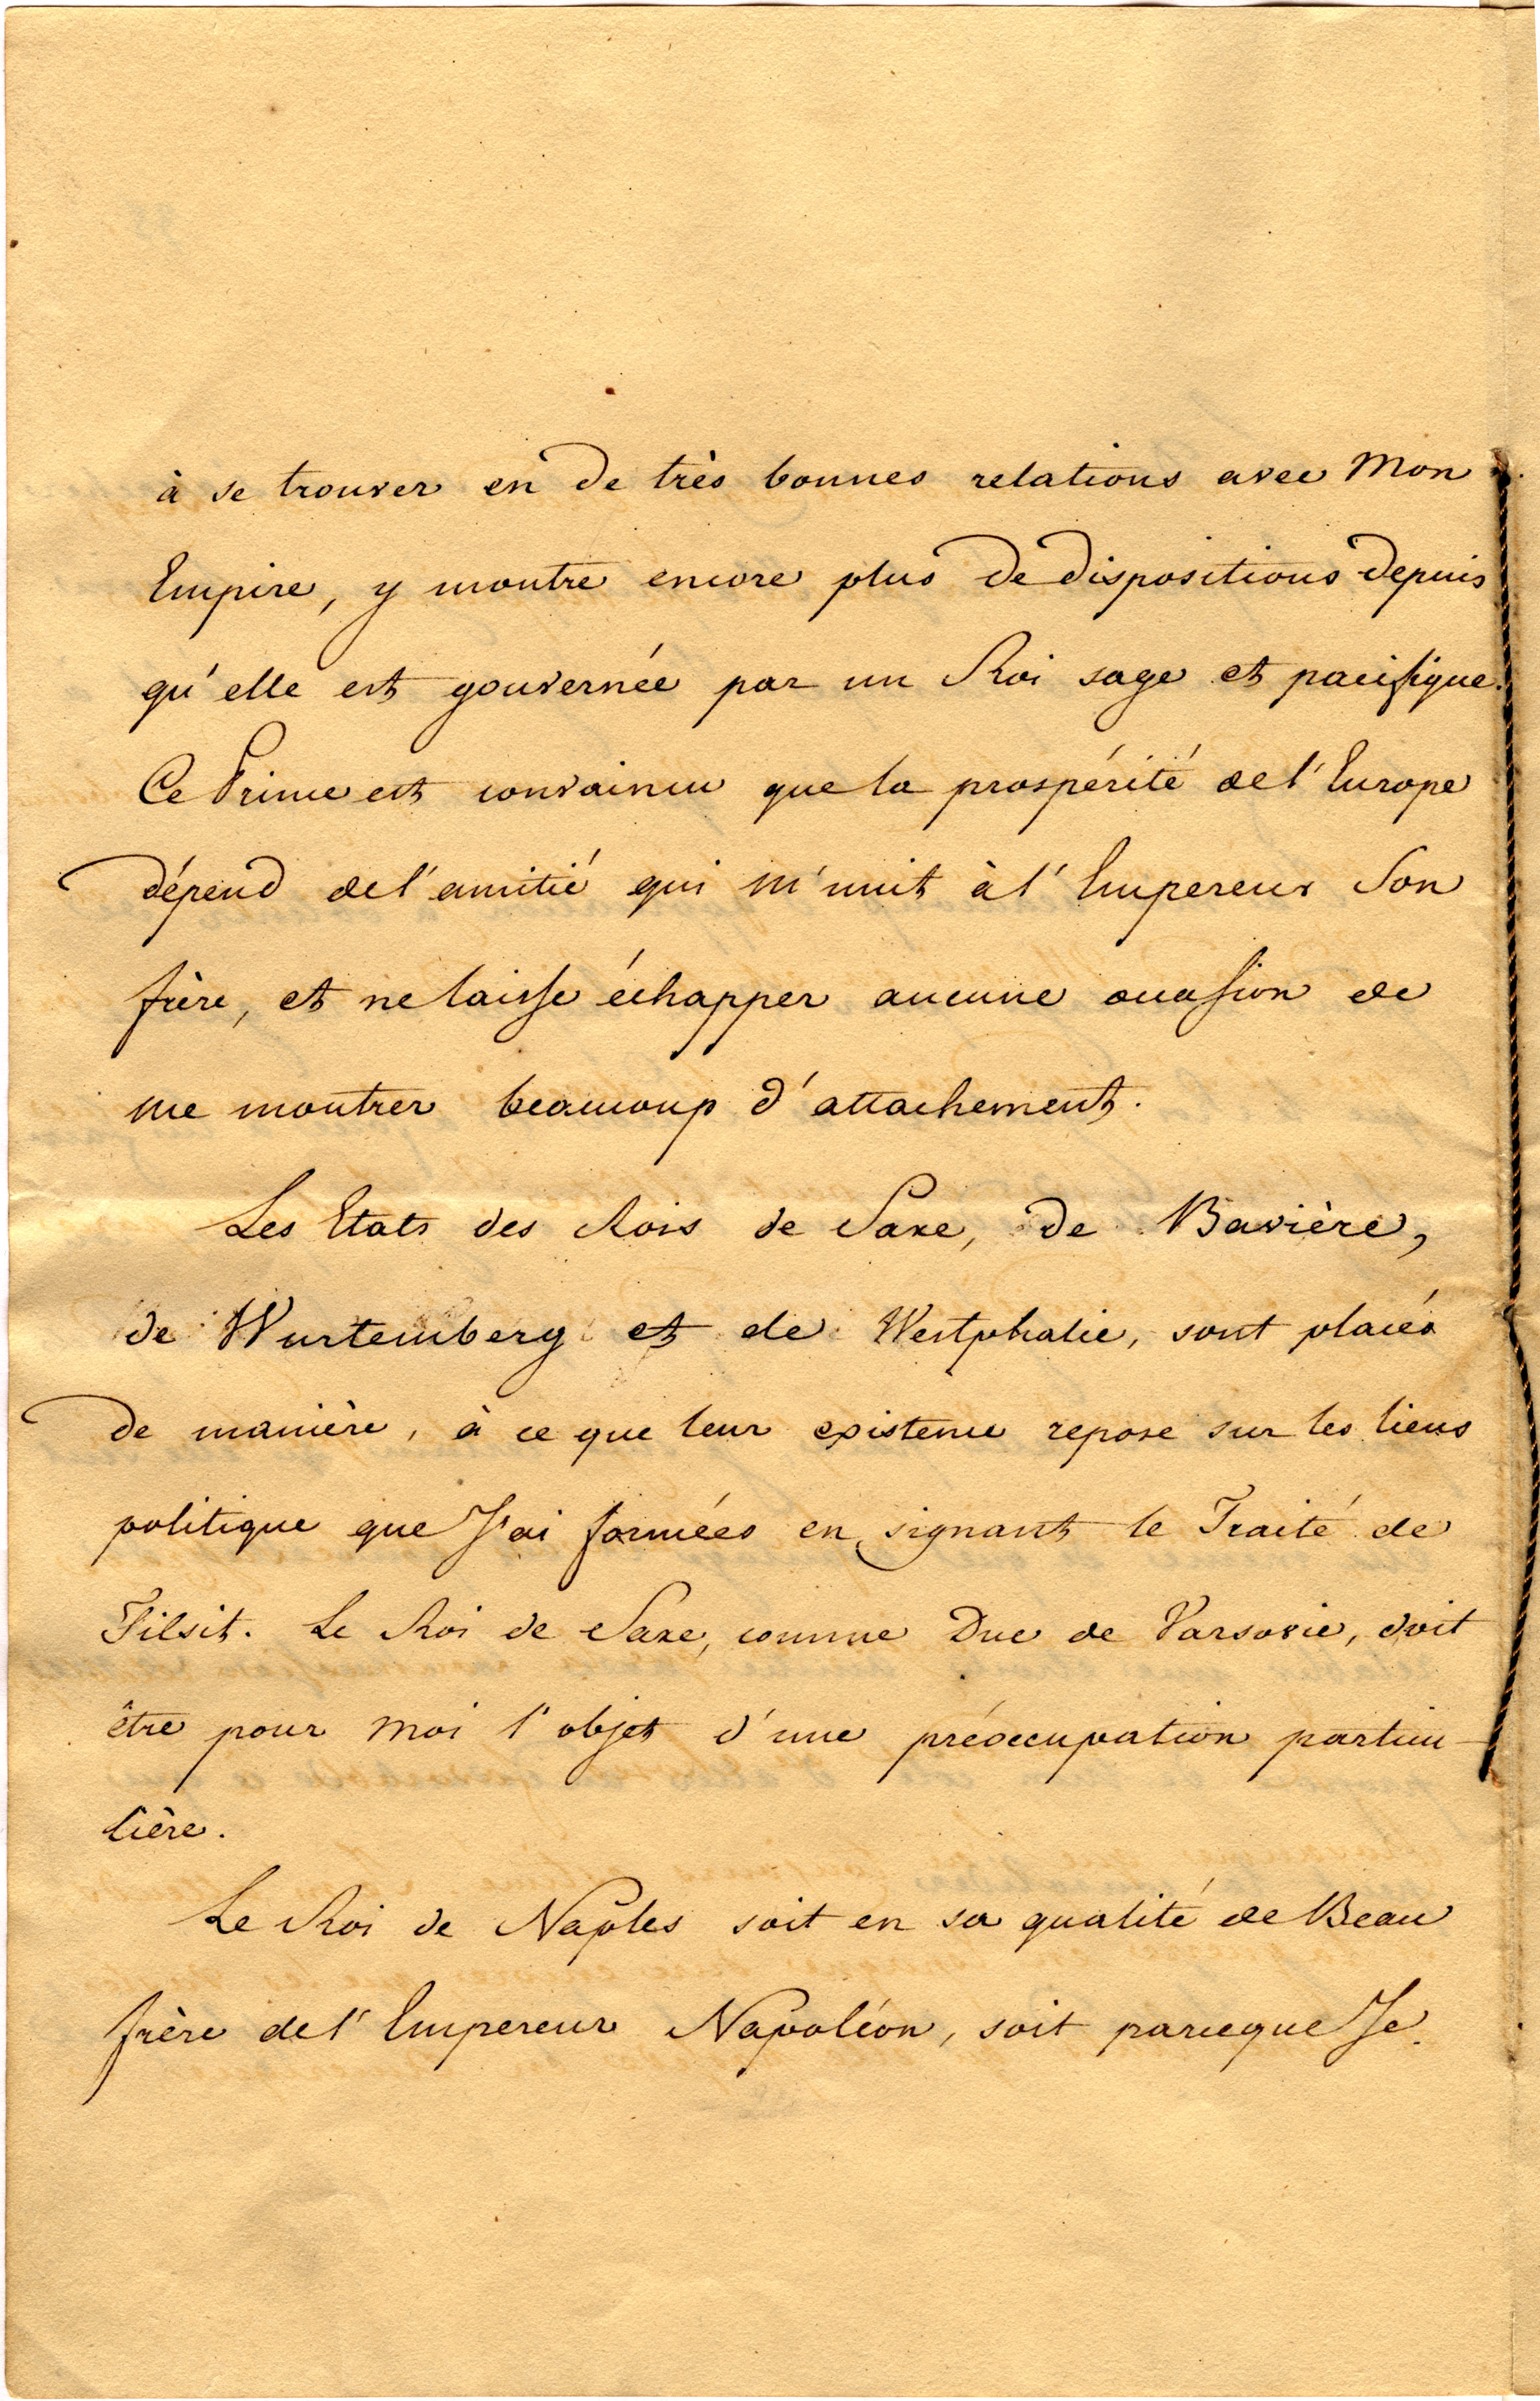 à se trouver en de très bonnes relations avec Mon
Empire, y montre encore plus de dispositions depuis
qu'elle est gouvernée par un Roi sage et pacifique.
Ce Prince est convaincu que la prospérité de l'Europe
dépend de l'amitié qui m'unit à l'Empereur Son
frère, et ne laisse échapper aucune occasion de
me montrer beaucoup d'attachement.
Les Etats des Rois de Saxe, de Bavière,
de Wurtemberg et de Westphalie, sont placés
de manière, à ce que leur existence repose sur les liens
politique que J'ai formées en signant le Traité de
Tilsit. Le Roi de Saxe, comme Duc de Varsovie, doit
être pour Moi l'objet d'une préoccupation particu-
lière.
Le Roi de Naples soit en sa qualité de Beau
frère de l'Empereur Napoléon, soit parceque Je